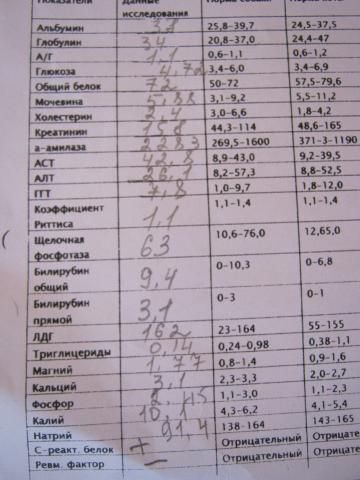 Показатели Данные исследования Норма собаки Норма
Альбумин 37 25,8-39,7 24,5-37,5
Глобулин 34 20,8-37,0 24,4-47
А/Г 1,1 0,6-1,1 0,6-1,2
Глюкоза 4,72 3,4-6,0 3,4-6,9
Общий белок 72 50-72 57,5-79,6
Мочевина 5,88 3,1-9,2 5,5-11,2
Холестерин 2,4 3,0-6,6 1,8-4,2
Креатинин 158 44,3-114 48,6-165
а-амилаза 2283 269,5-1600 371-3-1190
АСТ 42,8 8,9-43,0 9,2-39,5
АЛТ 26,1 8,2-57,3 8,8-52,5
ГГТ 7,8 1,0-9,7 1,8-12,0
Коэффициент Риттиса 1,1 1,1-1,4 1,1-1,4
Щелочная фосфотаза 63 10,6-76,0 12,65,0
Билирубин общий 9,4 0-10,3 0-6,8
Билирубин прямой 3,1 0-3 0-1
ЛДГ 162 23-164 55-155
Триглицериды 0,14 0,24-0,98 0,38-1,1
Магний 1,77 0,8-1,4 0,9-1,6
Кальций 3,1 2,3-3,3 2,0-2,7
Фосфор 1,1-3,0 1,1-2,3
Калий 10,1 4,3-6,2 4,1-5,4
Натрий 91,4 138-164 143-165
С-реакт. белок + Отрицательный Отрицате
Ревм. фактор - Отрицательный Отрицате